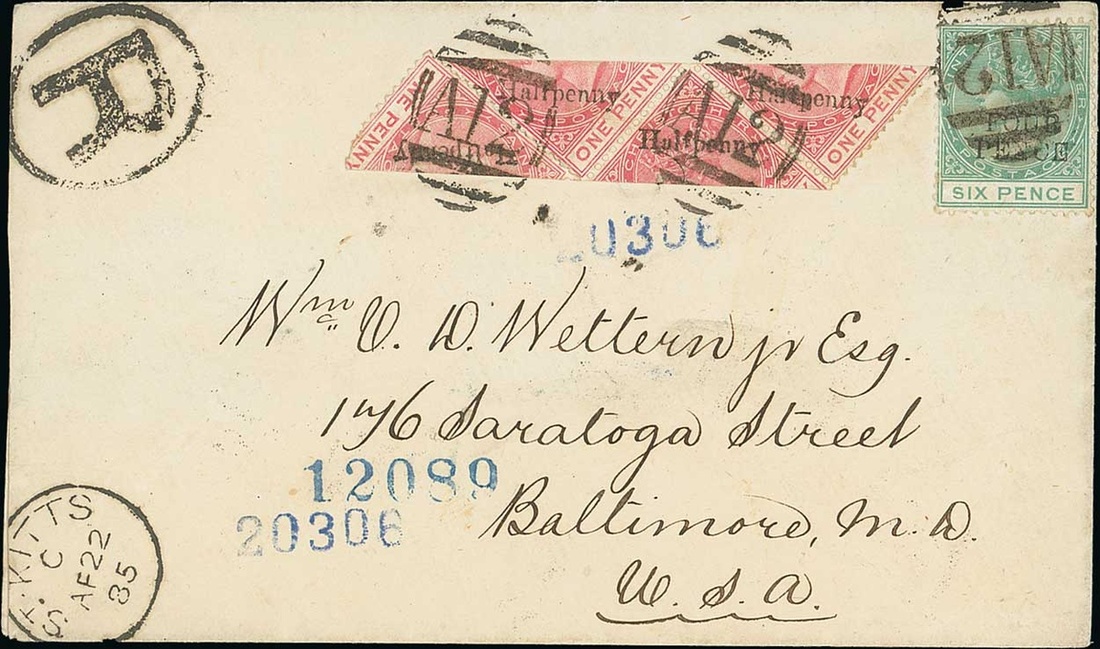 R
A12
A12
A12
Halfpenny
Halfpenny
Halfpenny
Halfpenny
ONE PENNY
ONE PENNY
FOUR
PENCE
SIX PENCE
20306
Wm. V. D. Wettern jr Esq.
176 Saratoga Street
12089
20306
Baltimore, M. D.
U. S. A.
ST. KITTS
C
AP 22
85